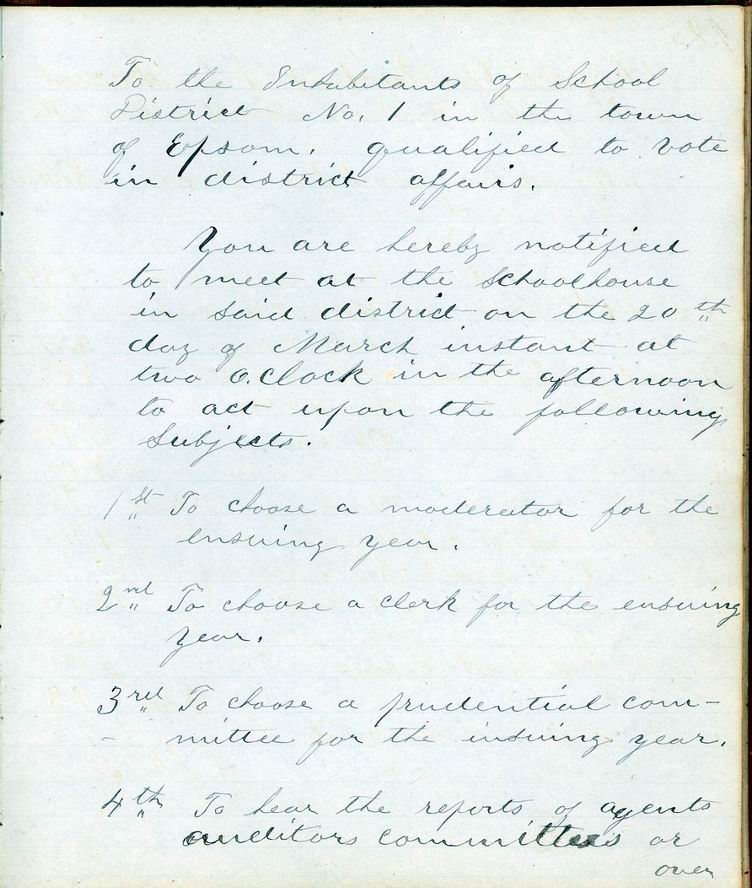 To the Enhabitants of School
District No. 1 in the town
of Epsom. qualified to vote
in district affairs.
You are hereby notified
to meet at the Schoolhouse
in said district on the 20th
day of March instant at
two o.clock in the afternoon
to act upon the following
Subjects.
1st To choose a moderator for the
ensuing year.
2nd To choose a clerk for the ensuing
year.
3rd To choose a prudential com-
mittee for the insuing year.
4th To hear the reports of agents
auditors committees or
over